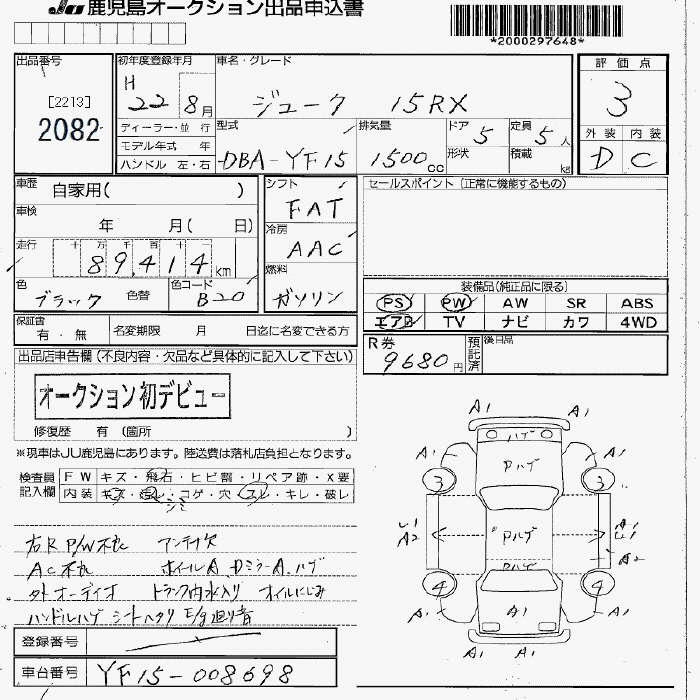 JU 鹿児島オークション出品申込書
*2000297648*
出品番号
[2213]
2082
初年度登録年月
H 22 8月
車名・グレード
ジューク 15RX
評価点
3
外装 内装
D C
ディーラー・並行
モデル年式 年
ハンドル 左・右
型式
DBA-YF15
排気量
1500cc
ドア 5
形状
定員 5人
積載 kg
車歴 自家用( )
車検 年 月( 日)
走行 十 万 千 百 十
89,414km
色 ブラック 色替
色コード B20
シフト
FAT
冷房
AAC
燃料
ガソリン
セールスポイント (正常に機能するもの)
装備品(純正品に限る)
PS PW AW SR ABS
エアB TV ナビ カワ 4WD
保証書 有・無
名変期限 月 日迄に名変できる方
R券 9680円
預託済
後日品
出品店申告欄 (不良内容・欠品など具体的に記入して下さい)
オークション初デビュー
修復歴 有 (箇所 )
※現車はJU鹿児島にあります。陸送費は落札店負担となります。
検査員記入欄
FW キズ・飛石・ヒビ割・リペア跡・X要
内装 キズ・汚レ・コゲ・穴・スレ・キレ・破レ
シミ
右R P/W不良 アンテナ欠
AC不良 ホイールA、DミラーA、ハゲ
外オーディオ トランク内水入り オイルにじみ
ハンドルハゲ シートヘタリ E/g廻り音
登録番号
車台番号 YF15-008698
A1 A1
ハゲ
A1 Pハゲ A1
3 3
U1 A2 Pハゲ A1 U1 A2
Pハゲ
4 4
A1 A1 A1
A1 A1